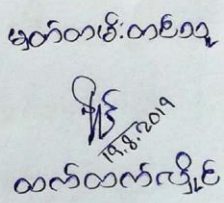 မှတ်တမ်းတင်သူ
19.8.2019
ထက်ထက်လှိုင်